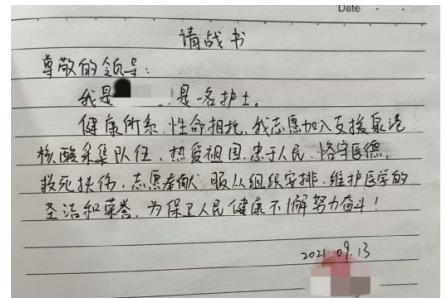 Date
请战书
尊敬的领导:
我是 是一名护士。
健康所系.性命相托,我志愿加入支援泉港
核酸采集队伍,热爱祖国.忠于人民.恪守医德.
救死扶伤,志愿奉献.服从组织安排.维护医学的
圣洁和荣誉,为保卫人民健康不懈努力奋斗!
2021.09.13